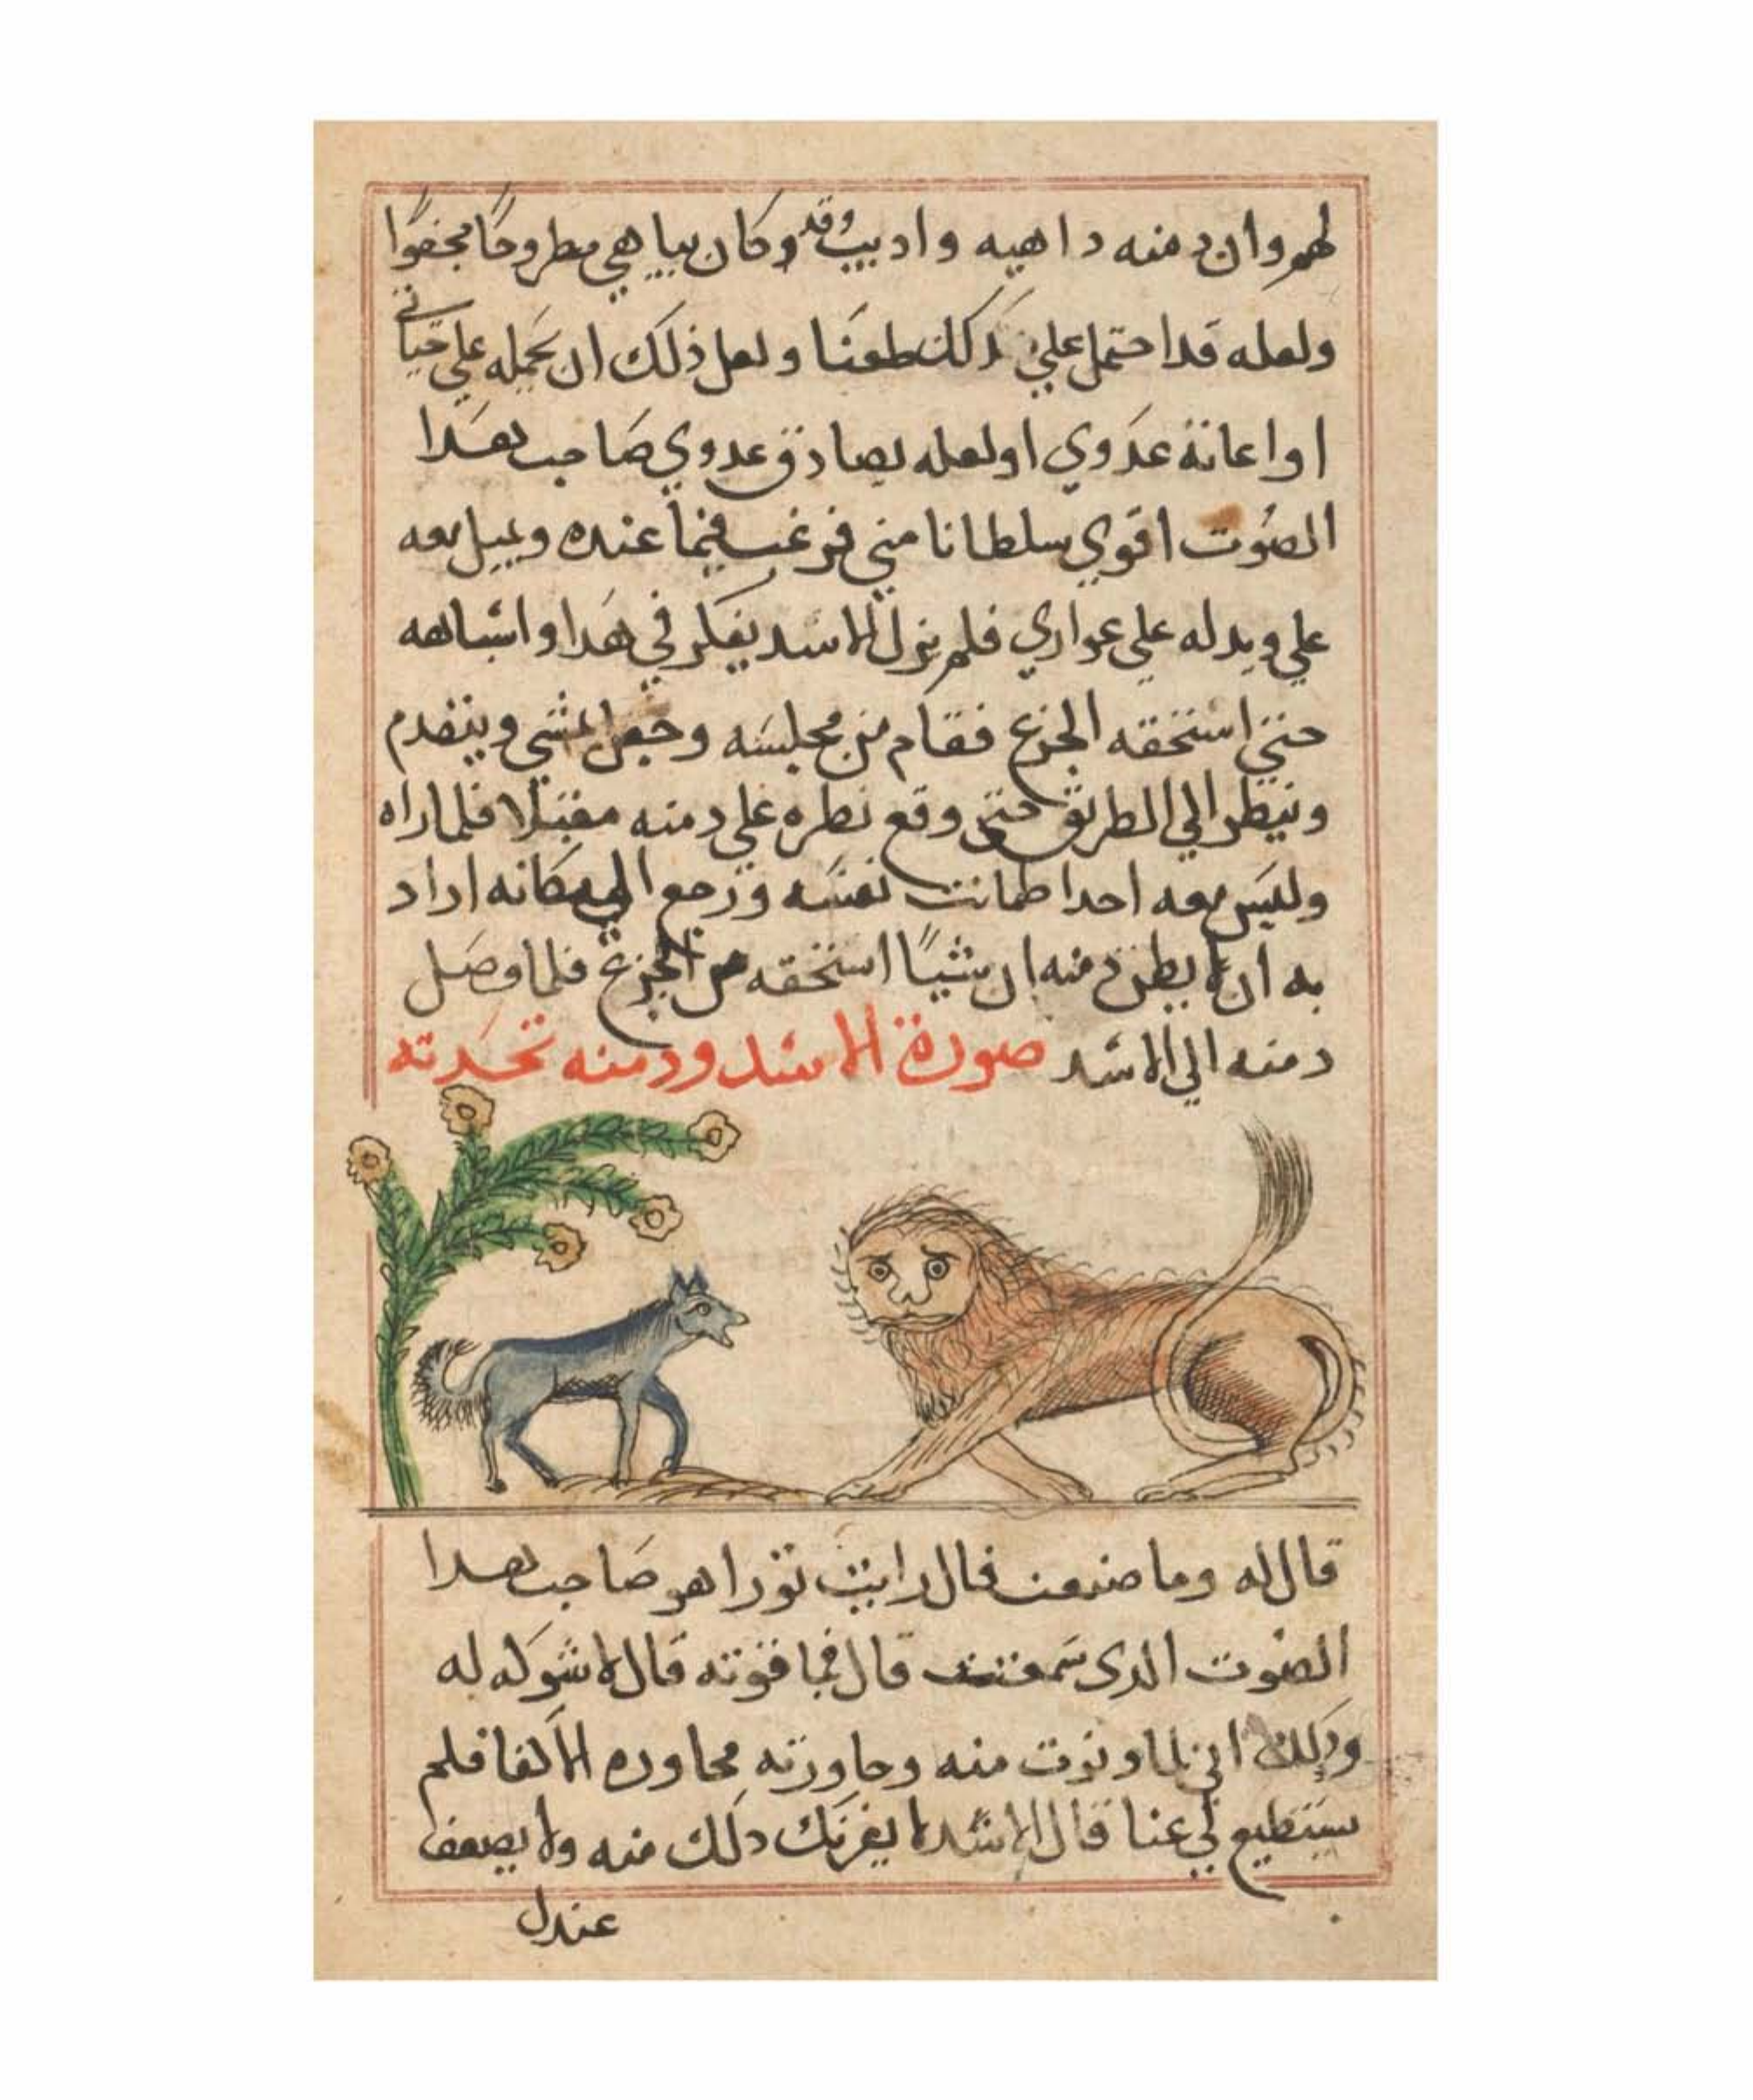 لهم وان دمنه داهيه واديب وقد وكان ببابي مطروحا مجفوا
ولعله قد احتمل علي ذلك طعنا ولعل ذلك ان يحمله علي خياني
او اعانة عدوي او لعله يصادق عدوي صاحب هدا
الصوت اقوي سلطانا مني فرغب فيما عنده ويميل معه
علي ويدله علي عواري فلم يزل الاسد يفكر في هدا واشباهه
حتي استخقه الجزع فقام من مجلسه وجعل يمشي ويتقدم
وينظر الي الطريق حتى وقع نطره علي دمنه مقبلا فلما راه
وليس معه احدا طمانت نفسه ورجع الي مكانه اراد
به ان لا يطن دمنه ان شيا استخقه من الجزع فلما وصل
دمنه الي الاسد صورة الاسد ودمنه تحدته
قال له وما صنعت قال رايت تورا هو صاحب هدا
الصوت الدى سمعت قال فما قوته قال لا شوكه له
ودلك اني لما دنوت منه وحاورته محاوره الاكفا فلم
يستطيع لي عنا قال الاسد لا يغرنك دلك منه ولا يصعف
عندل